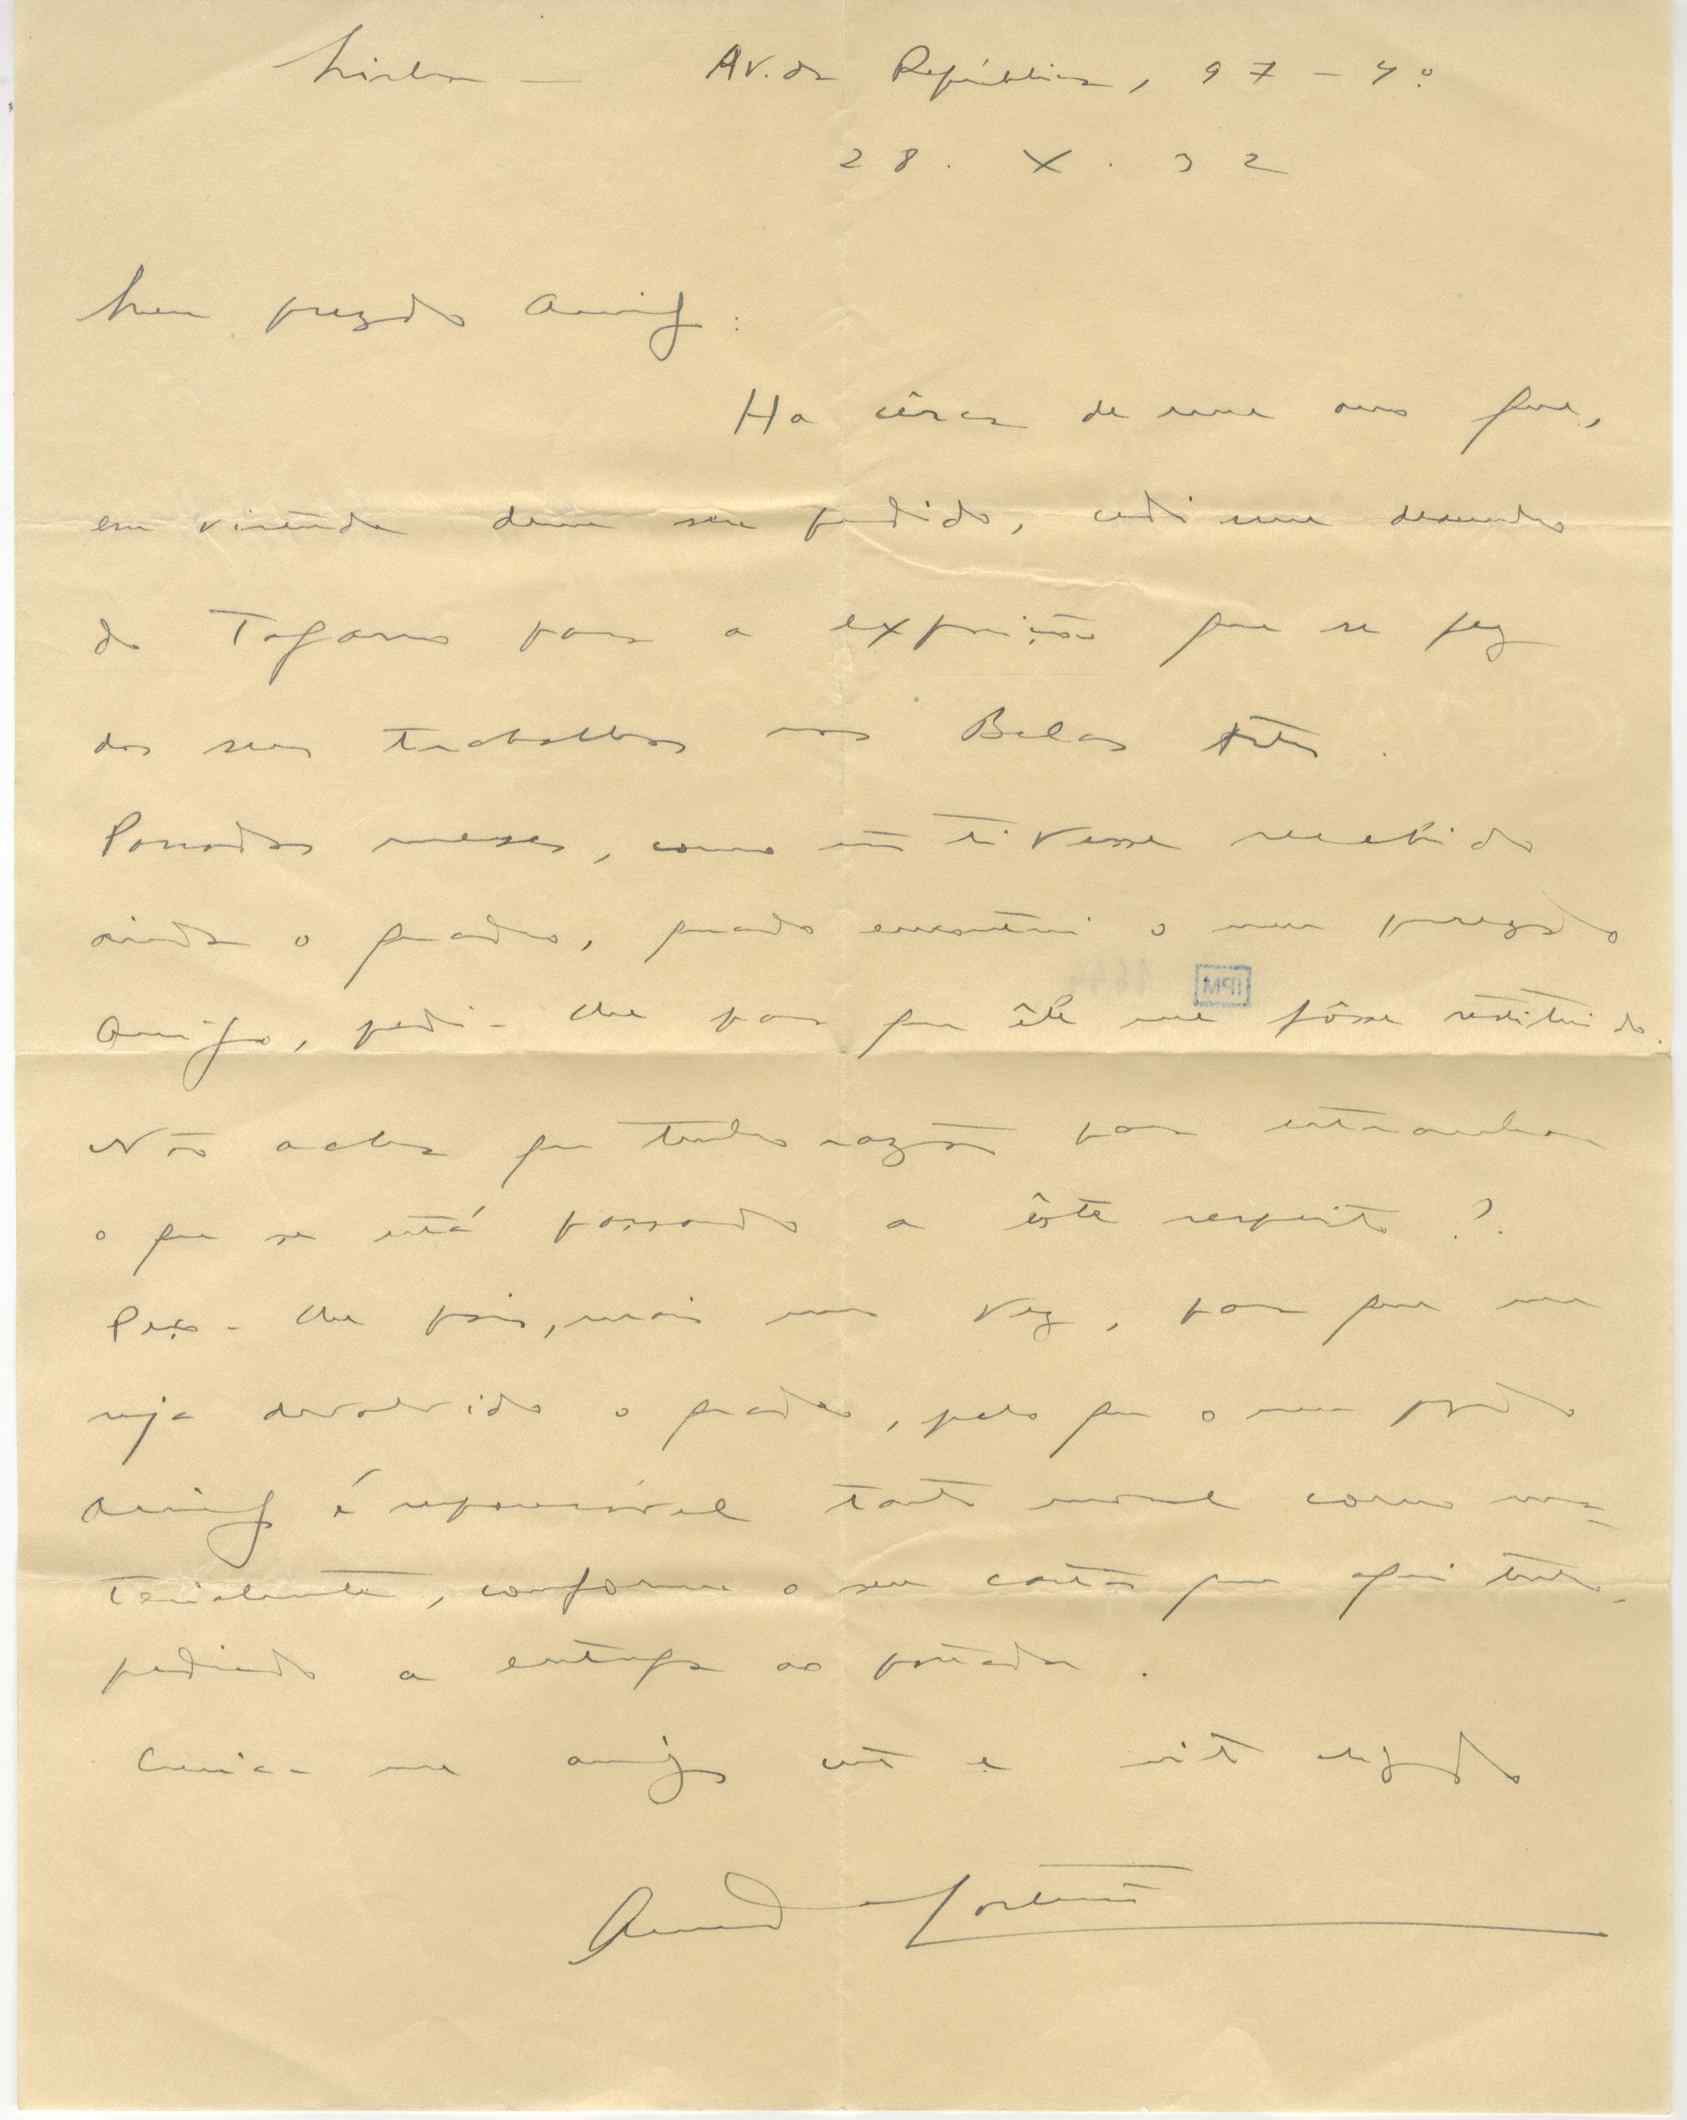 Lisboa — Av. da República, 97 - 4º
28. X. 32
Meu prezado Amigo:
Ha cêrca de um ano que,
em virtude dum seu pedido, cedi um desenho
do Tagarro para a exposição que se fez
dos seus trabalhos nas Belas Artes.
Passados meses, como não tivesse recebido
ainda o quadro, quando encontrei o meu prezado
Amigo, pedi-lhe para que êle me fôsse restituido.
Não acha que tenho razão para estranhar
o que se está passando a êste respeito?
Peço-lhe pois, mais uma vez, para que me
seja devolvido o quadro, pelo que o meu prezado
Amigo é responsável tanto moral como ma-
terialmente, conforme o seu cartão que aqui tenho
pedindo a entrega ao portador.
Creia-me amigo certo e muito obrigado
IPM